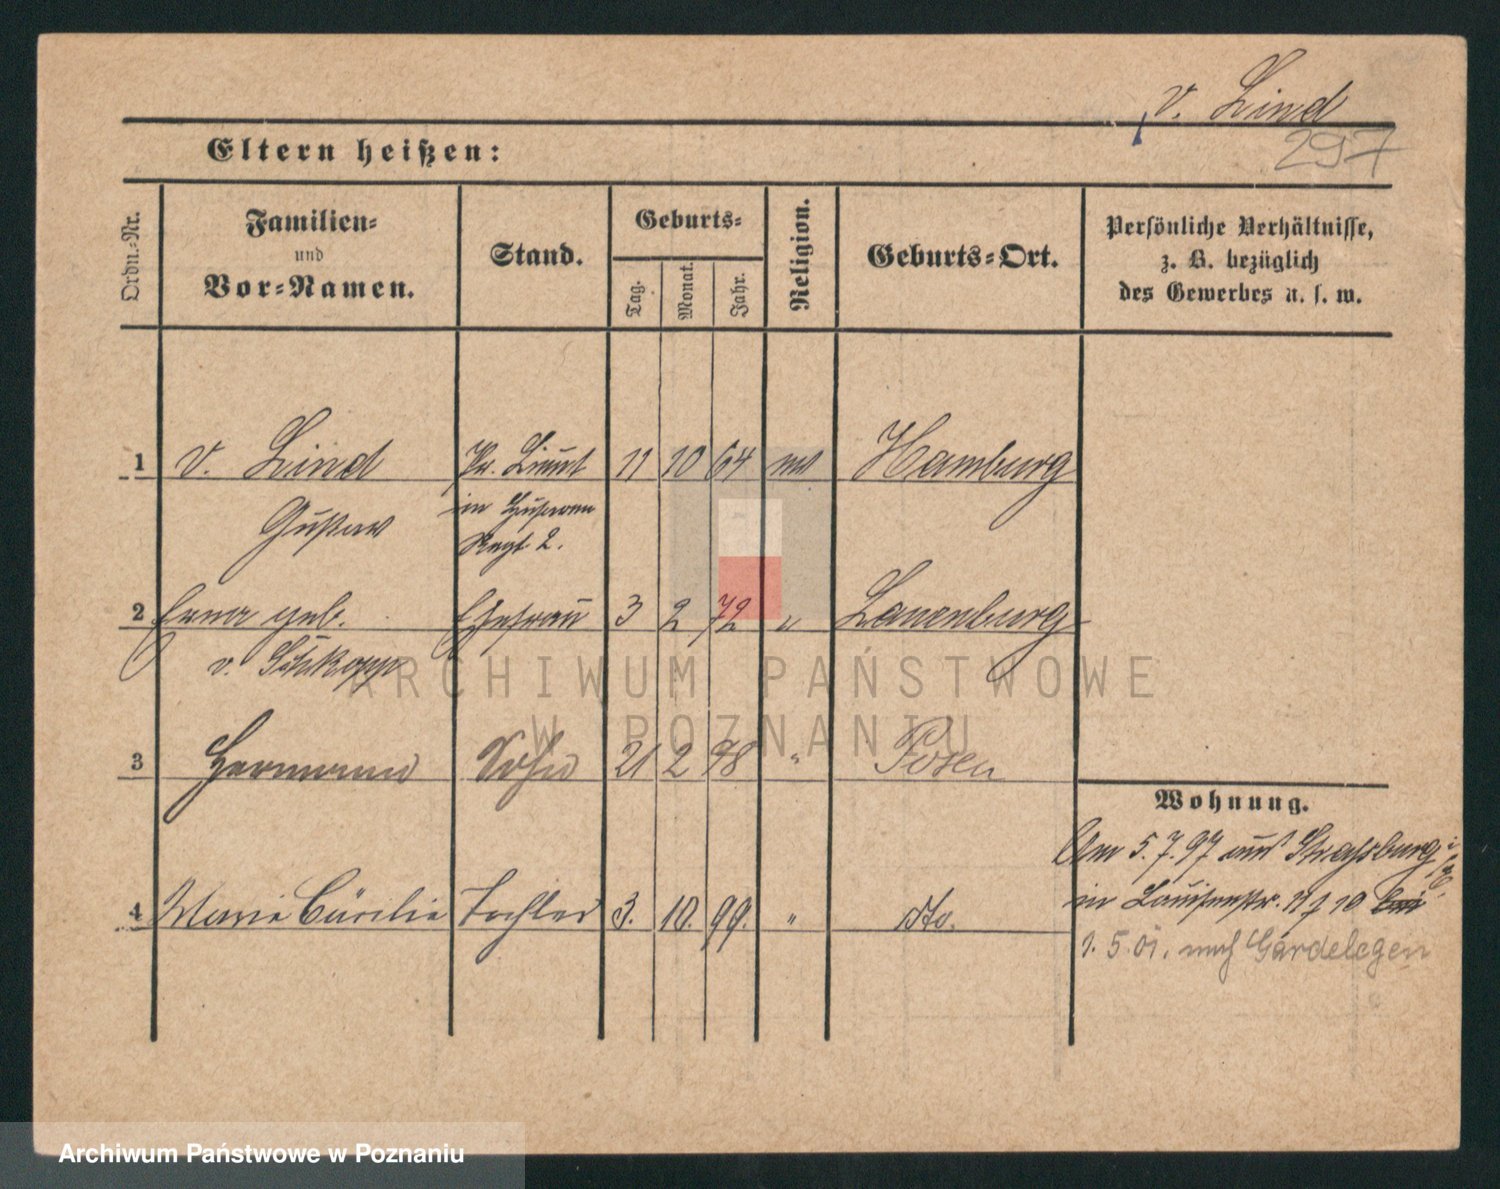 v. Lind
297
Eltern heißen:
Ordn.-Nr.
Familien-
und
Vor-Namen.
Stand.
Geburts-
Tag.
Monat.
Jahr.
Religion.
Geburts-Ort.
Persönliche Verhältnisse,
z. B. bezüglich
des Gewerbes u. s. w.
1 v. Lind Pr. Lieut 11 10 64 ev Hamburg
Gustav in Husaren
Regt. 2.
2 Erna geb. Ehefrau 3 2 72 " Lauenburg
v.
3 Hermann Sohn 21 2 98 " Posen
4 Marie Cäcilie Tochter 3. 10. 99. " dto.
Wohnung.
Am 5.7.97 aus Straßburg
in Louisenstr. 10
1.5.01. nach Gardelegen
ARCHIWUM PAŃSTWOWE
W POZNANIU
Archiwum Państwowe w Poznaniu